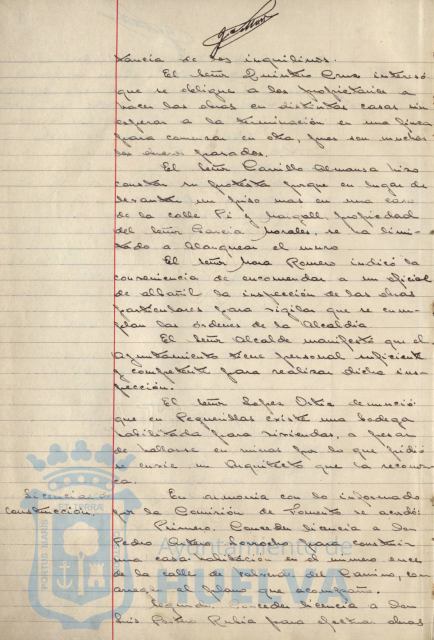 tancia de los inquilinos.
El señor Quintero Cruz interesó
que se oblique a los propietarios a
hacer las obras en distintas casas sin
esperar a la terminación en una finca
para comenzar en otra, pues son muchos
los obreros parados.
El señor Carrillo Almansa hizo
constar su protesta porque en lugar de
levantar un piso mas en una casa
de la calle Pí y Margall, propiedad
del señor García Morales, se ha limi-
tado a blanquear el muro
El señor Mora Romero indicó la
conveniencia de encomendar a un oficial
de albañil la inspección de las obras
particulares para vigilar que se cum-
plan las órdenes de la Alcaldía
El señor Alcalde manifestó que el
Ayuntamiento tiene personal suficiente
y competente para realizar dicha ins-
pección.
El señor López denunció
que en Pequerillas existe una bodega
habilitada para viviendas, a pesar
de hallarse en ruinas por lo que pidió
se envíe un Arquitecto que la reconoz-
ca.
Licencias de
construcción.
En armonía con lo informado
por la Comisión de Fomento se acordó:
Primero. Conceder licencia a don
Pedro Borrocho para construir
una casa habitación en el número once
de la calle de del Camino, con
arreglo al plano que acompaña.
Segundo. Conceder licencia a don
Luis Rubia para efectuar obras
Ayuntamiento de
HUELVA
PORTUS MARIS